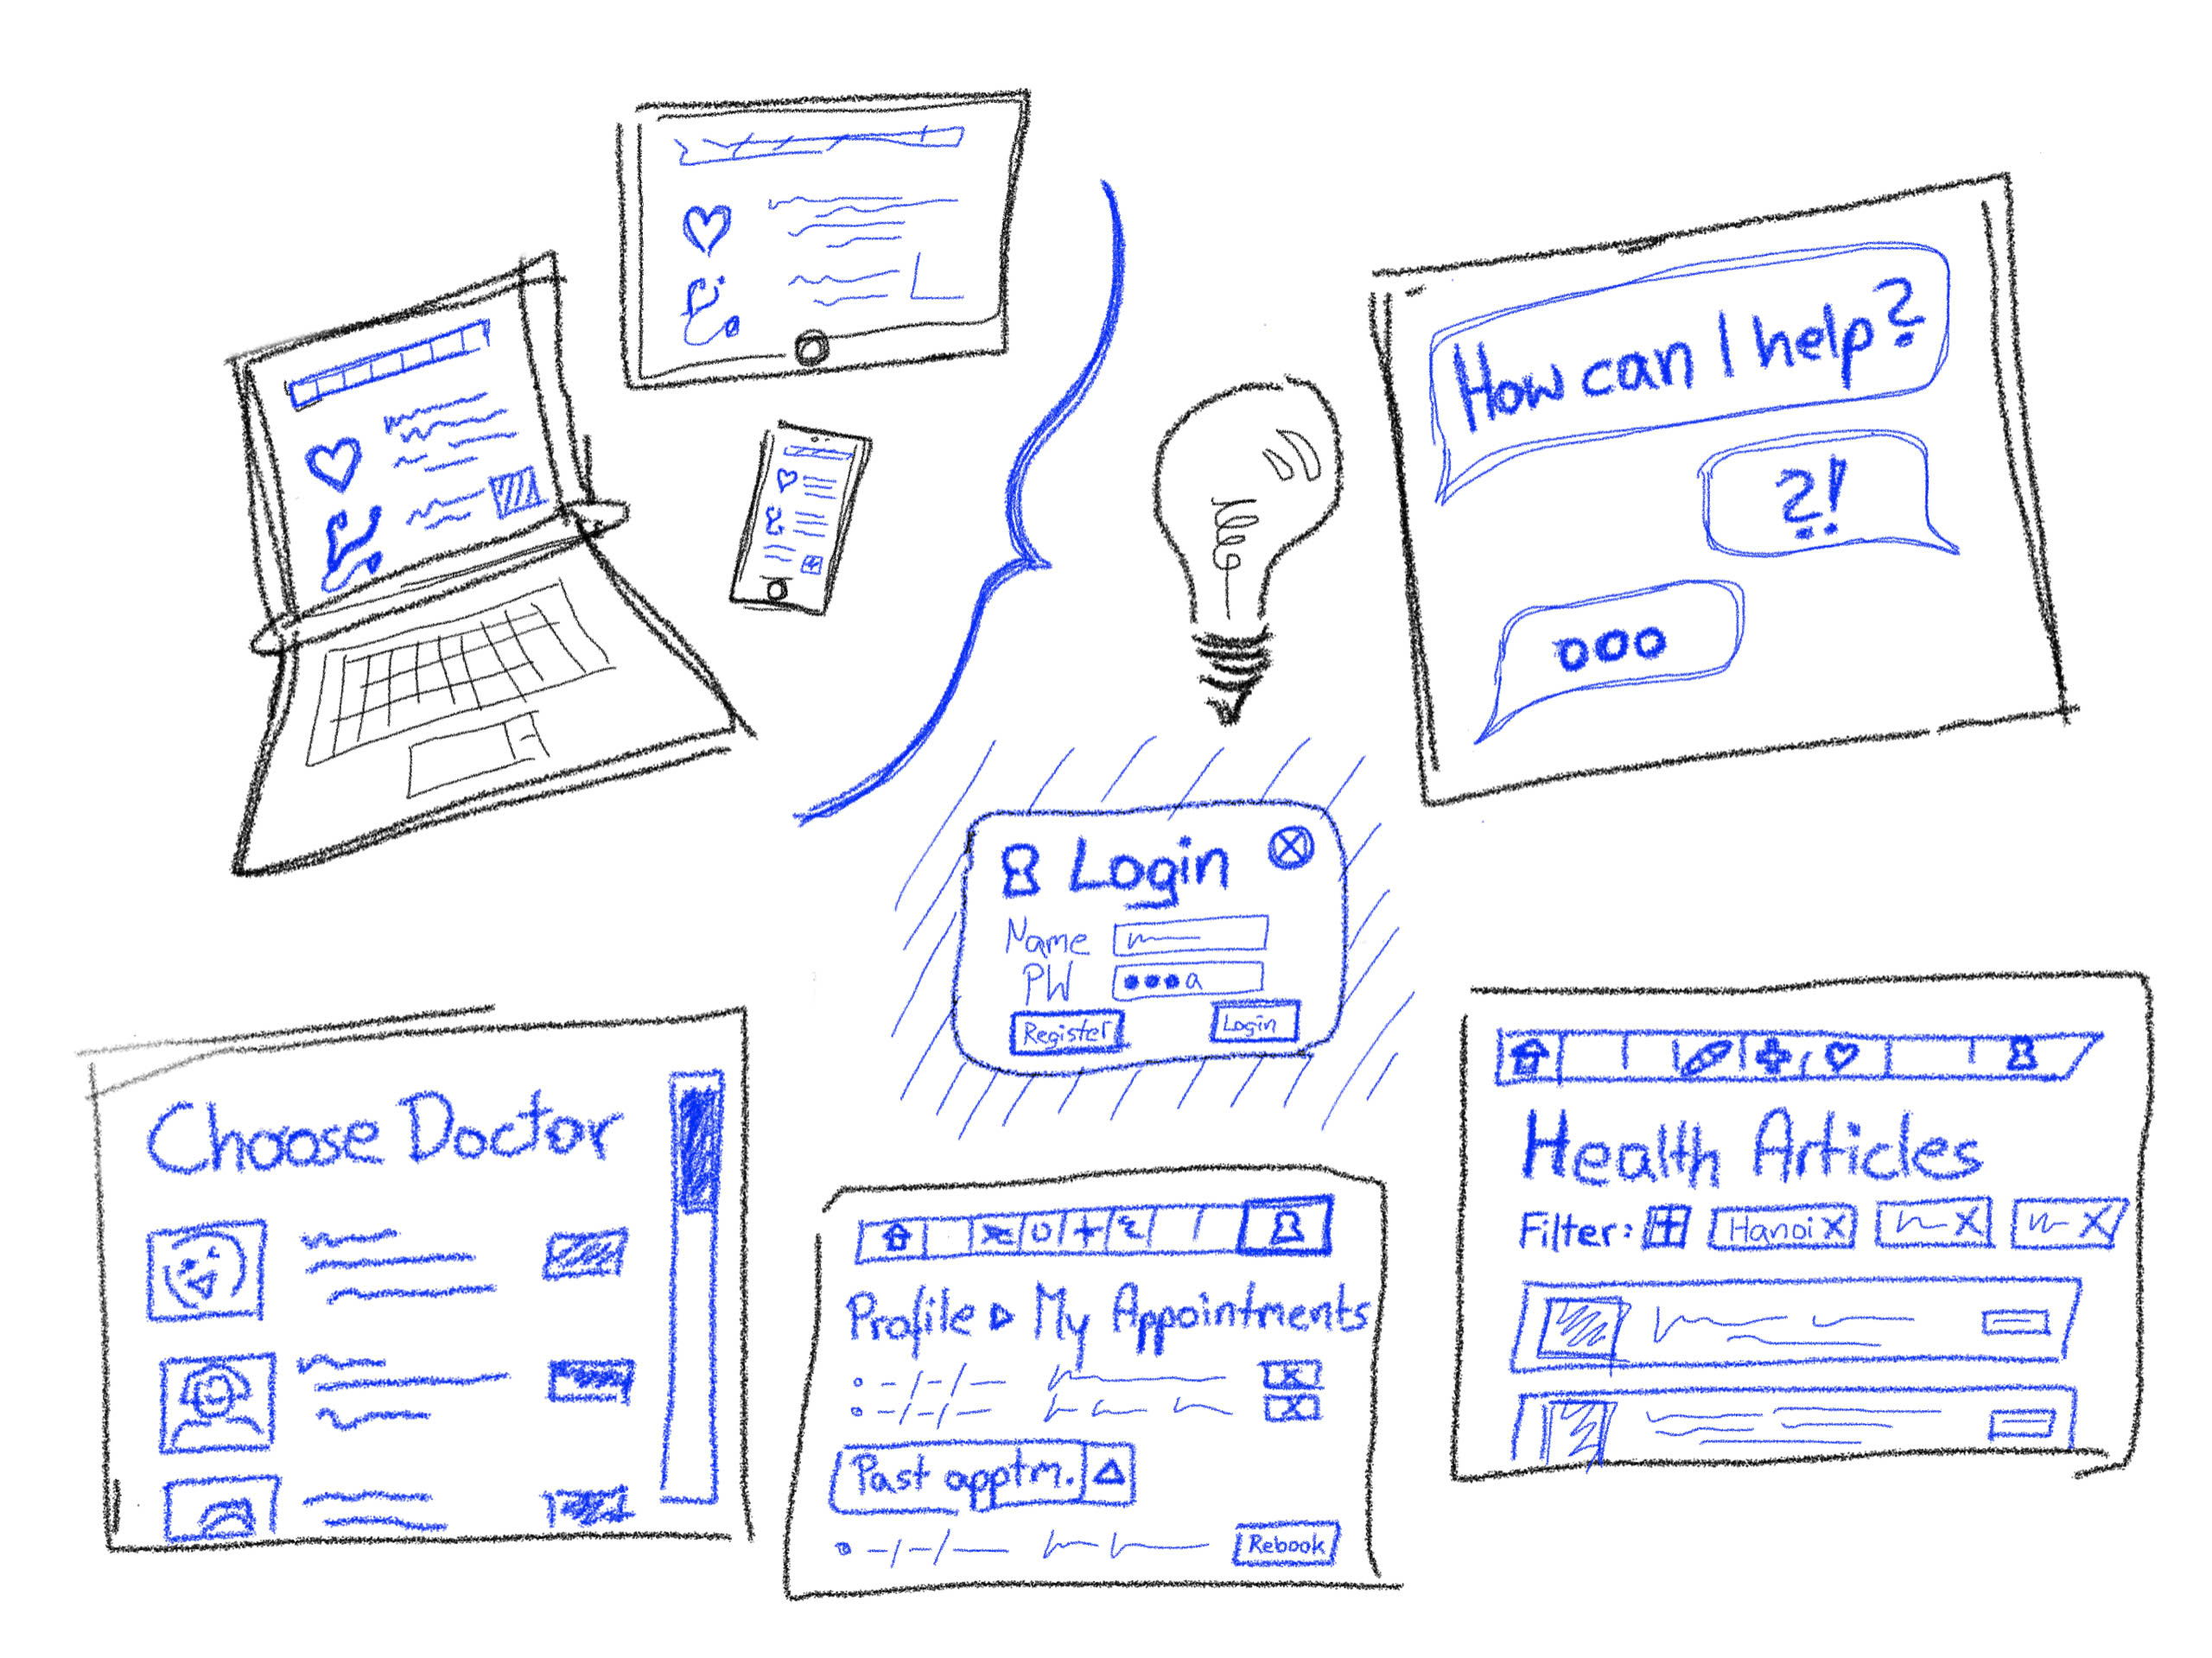 How can I help?
?!
Login
Name
PW
Register
Login
Choose Doctor
Profile ▷ My Appointments
Past apptm.
Rebook
Health Articles
Filter: Hanoi X